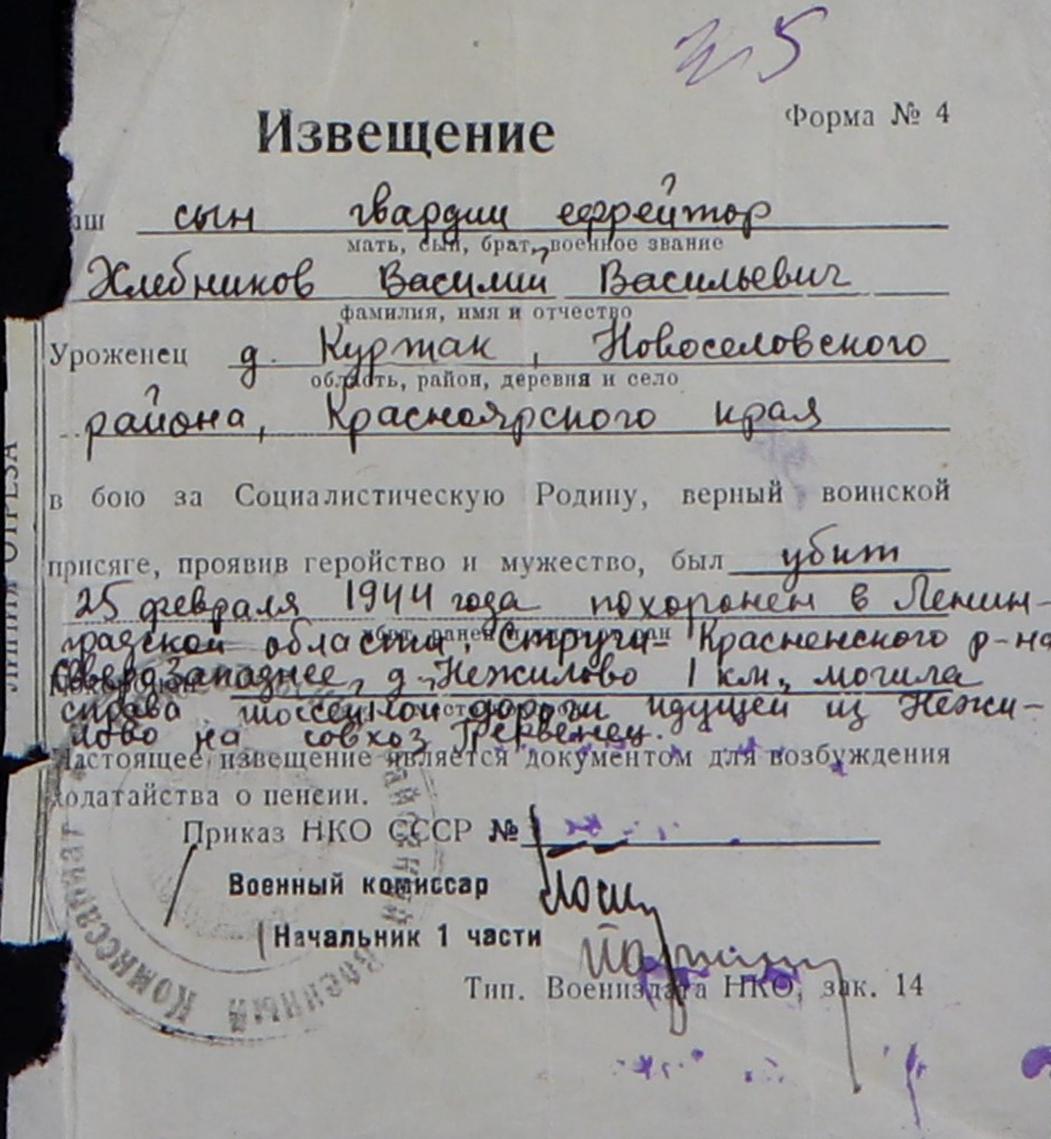 5
Форма № 4
Извещение
аш сын гвардии ефрейтор
мать, сын, брат, военное звание
Хлебников Василий Васильевич
фамилия, имя и отчество
Уроженец д. Куртак, Новоселовского
область, район, деревня и село
района, Красноярского края
в бою за Социалистическую Родину, верный воинской
присяге, проявив геройство и мужество, был убит
25 февраля 1944 года похоронен в Ленин-
градской области, Струги-Красненского р-на
Северо западнее, д. Нежилово 1 км., могила
справа шоссейной дороги идущей из Нежи-
лово на совхоз Червенец.
Настоящее извещение является документом для возбуждения
ходатайства о пенсии.
Приказ НКО СССР №
Военный комиссар
Начальник 1 части
Тип. Воениздата НКО, зак. 14
ЛИНИЯ ОТРЕЗА
Военный Комиссариат